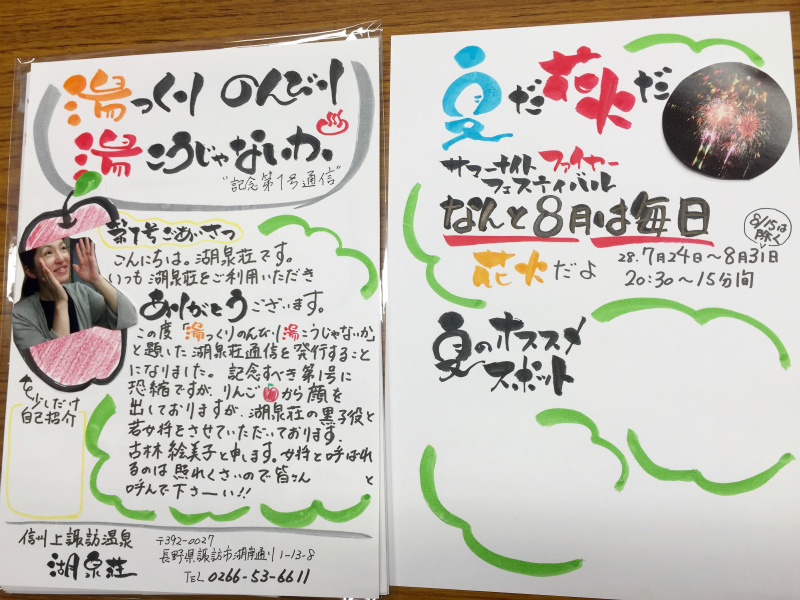 湯っくりのんびり
湯こうじゃないか、
"記念第1号通信"
第1号ごあいさつ
こんにちは。湖泉荘です。
いつも湖泉荘をご利用いただき
ありがとうございます。
この度「湯っくりのんびり湯こうじゃないか」
と題した湖泉荘通信を発行すること
になりました。記念すべき第1号に
恐縮ですが、りんごから顔を
出しておりますが、湖泉荘の黒子役と
若女将をさせていただいております、
古林絵美子と申します。女将と呼ばれ
るのは照れくさいので皆さん と
呼んで下さーい!!
少しだけ
自己紹介
信州上諏訪温泉
湖泉荘
〒392-0027
長野県諏訪市湖岸通り1-13-8
TEL 0266-53-6611
夏だ花火だ
サマーナイトファイヤー
フェスティバル
なんと8月は毎日
8/15は
除く
花火だよ
28.7月24日〜8月31日
20:30〜15分間
夏のオススメ
スポット